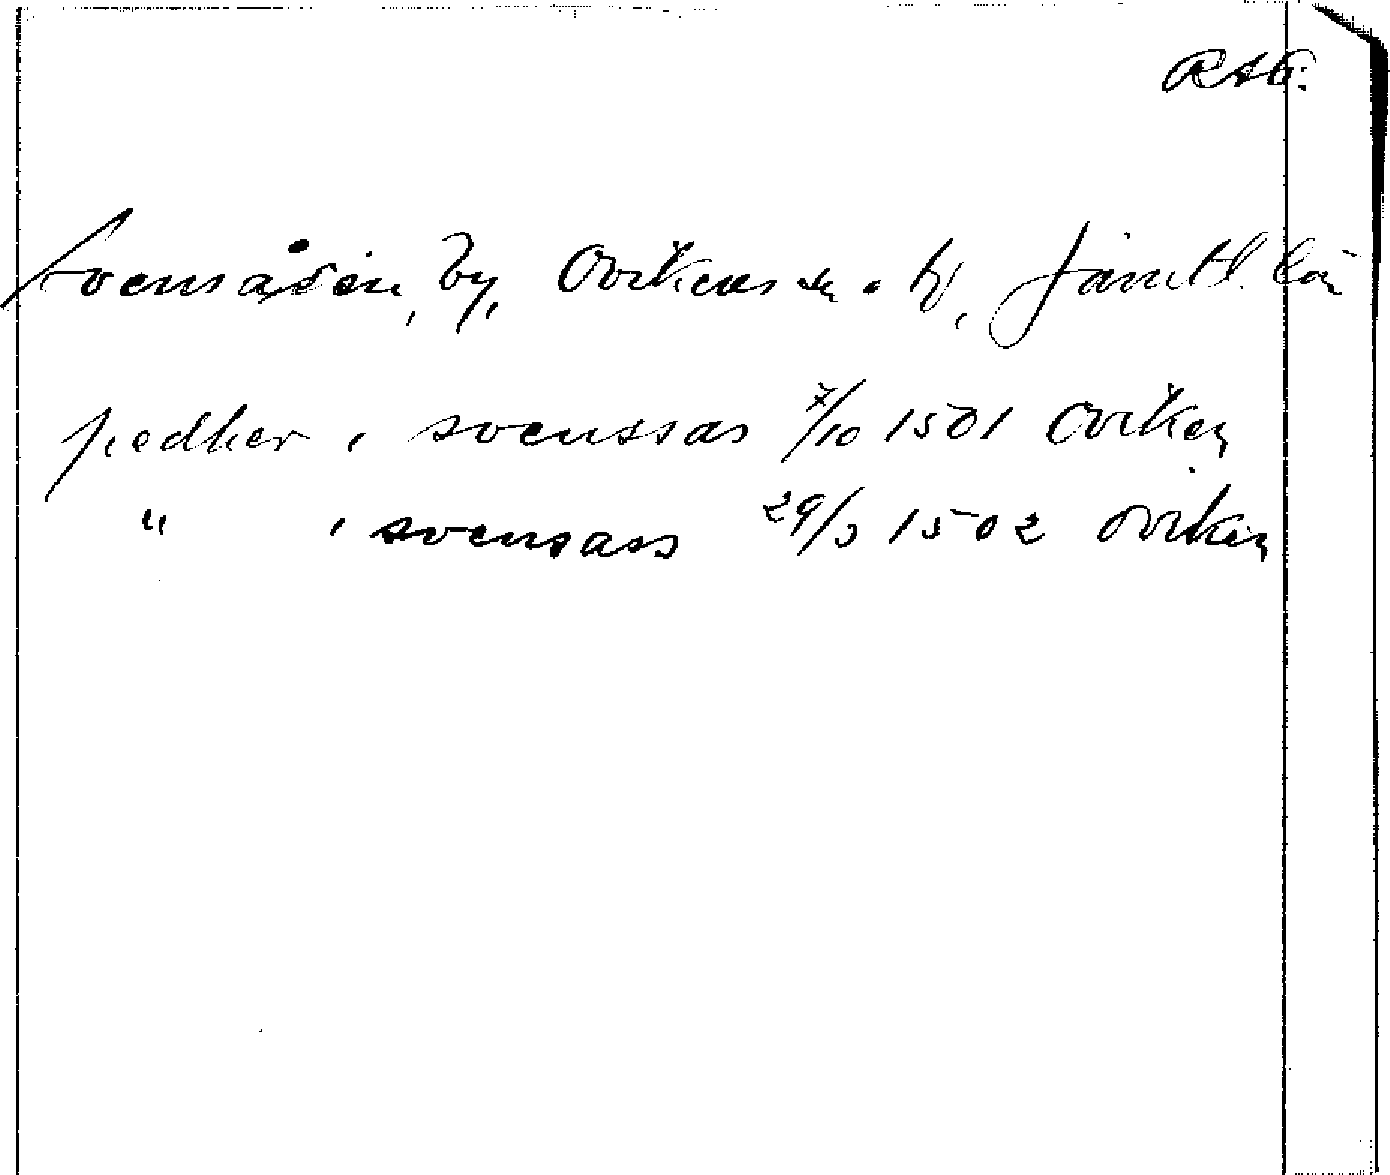 RAP.
Svensåsen, by, Ovikens sn. o. td, Jämtl. län
pedher i svenssas 7/10 1501 Oviken
" i svensass 29/3 1502 Oviken